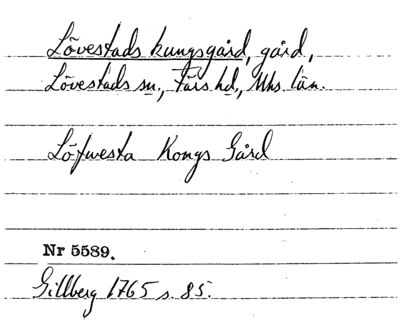 Lövestads kungsgård, gård,
Lövestads sn., Färs hd., Mhs. län.
Löfwesta Kongs Gård
Nr 5589.
Gillberg 1765 s. 85.